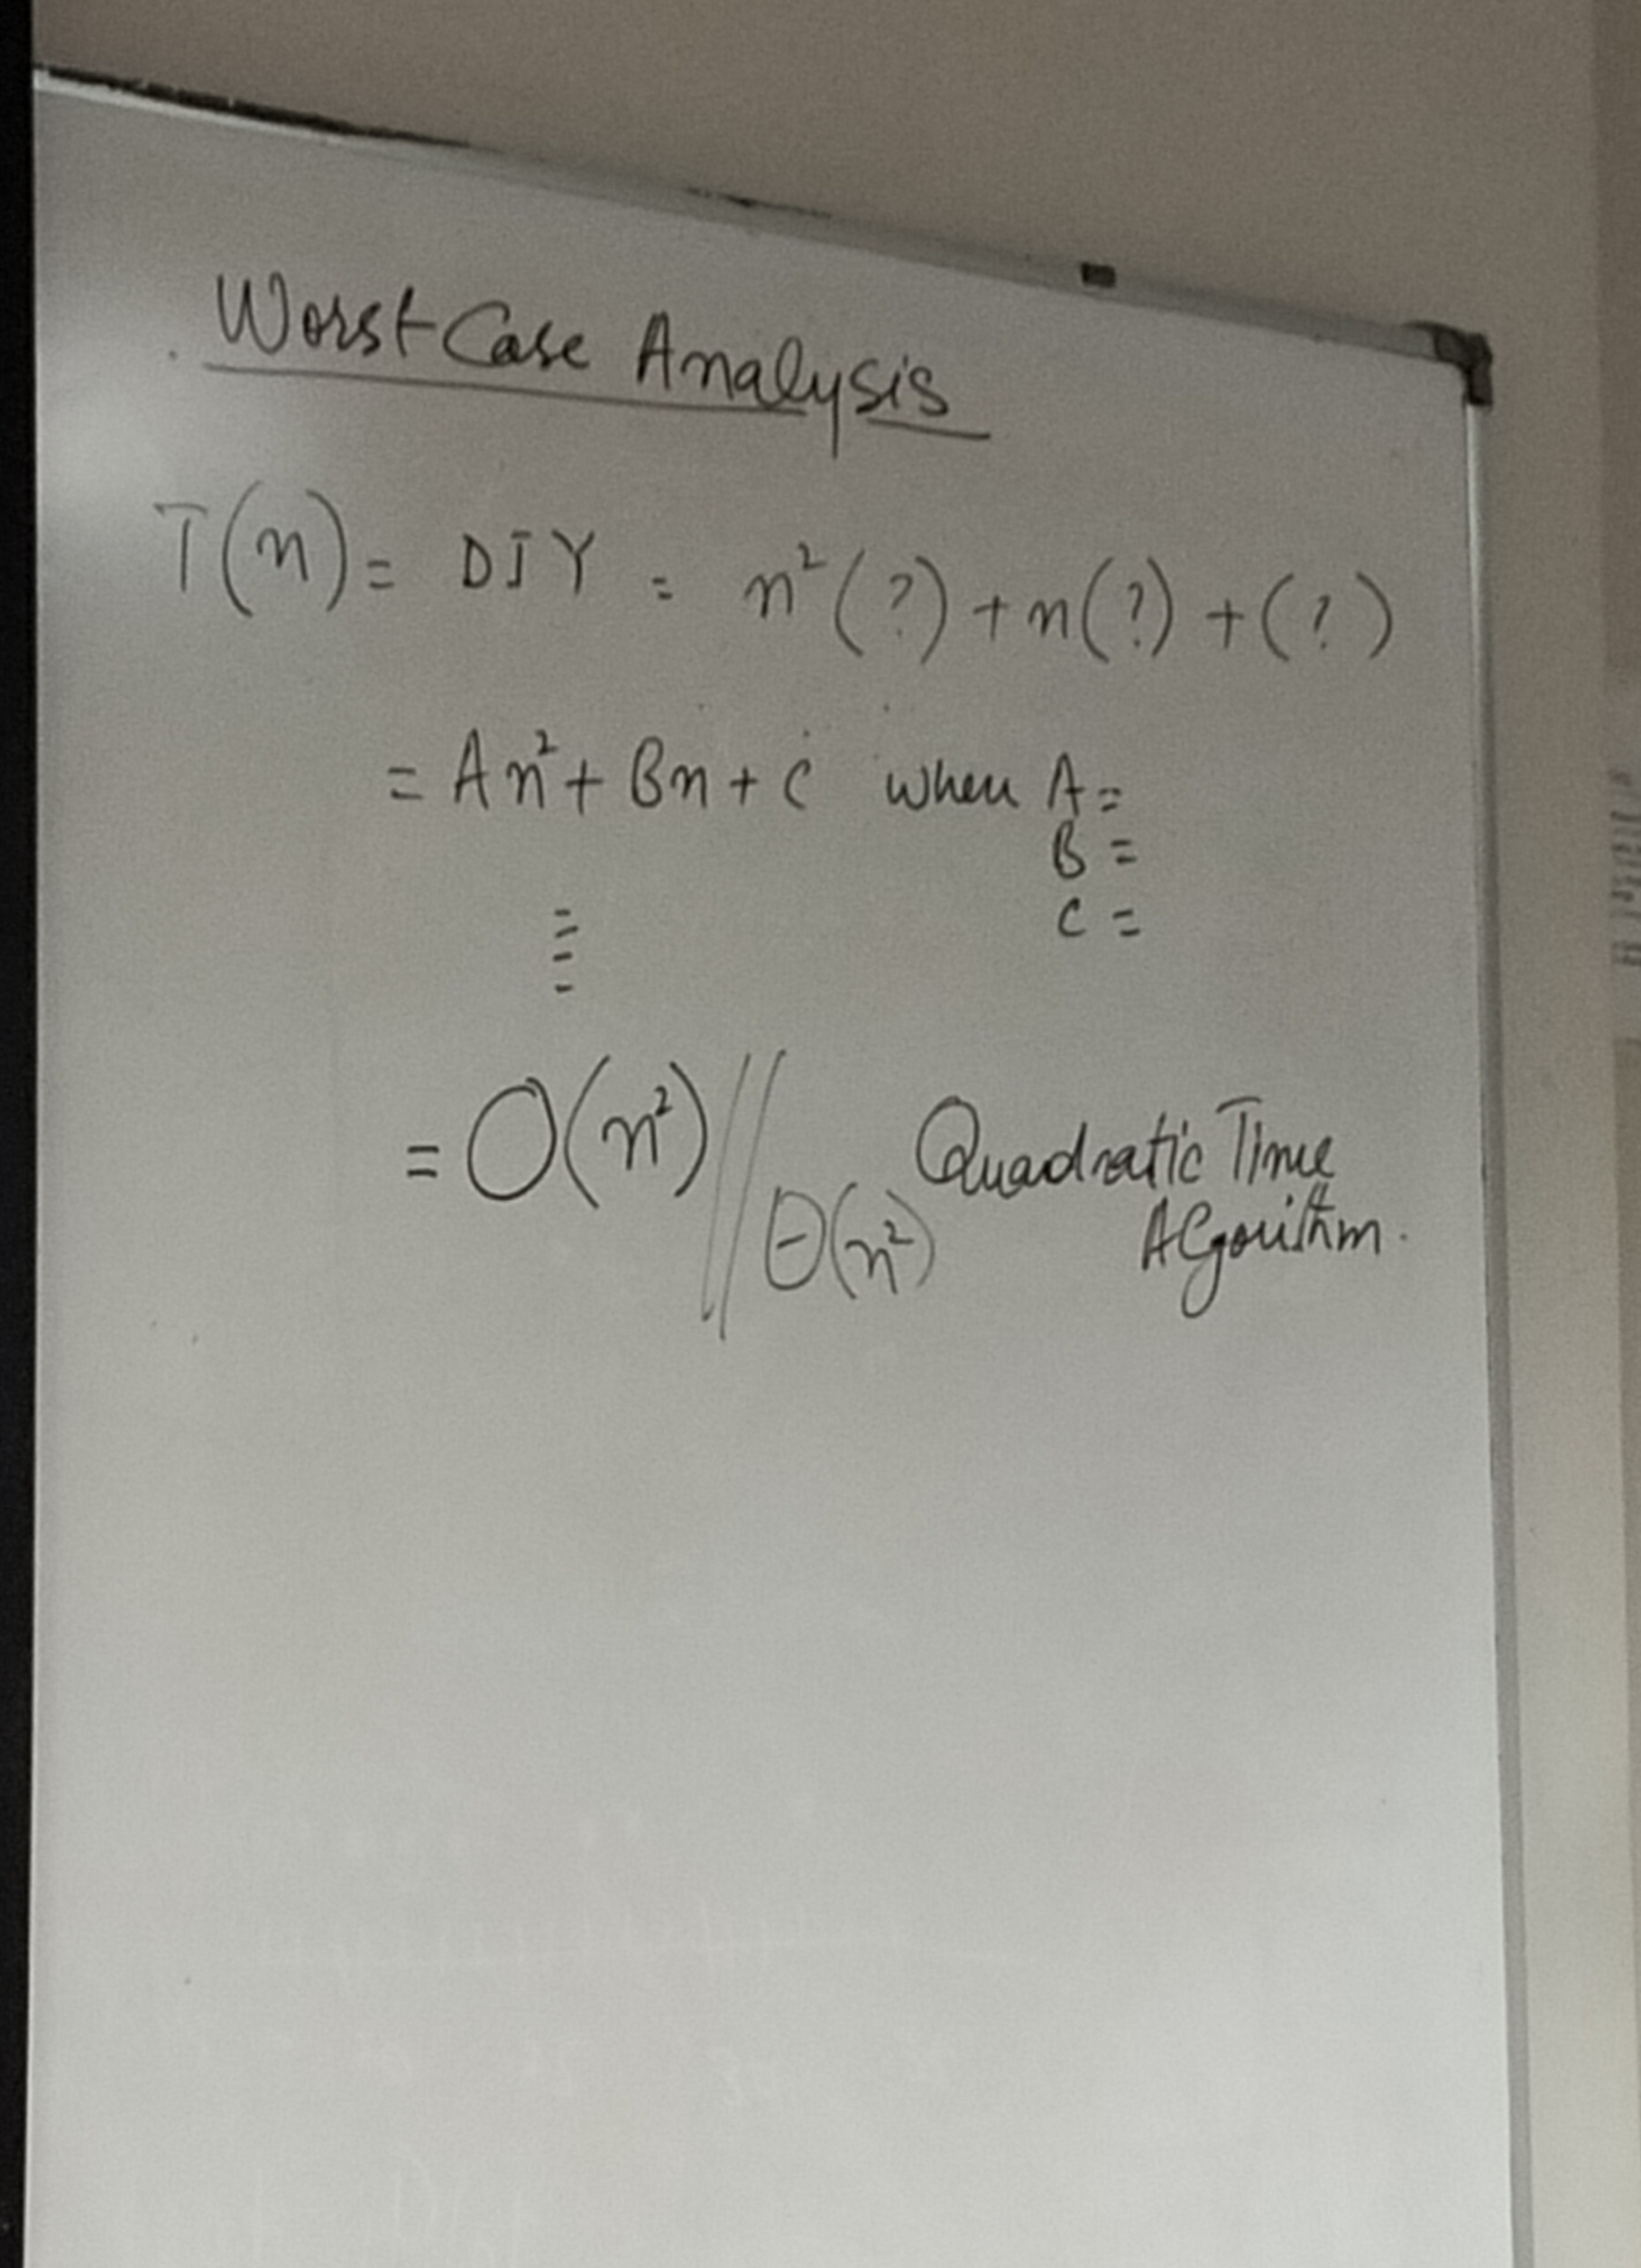 Worst Case Analysis
T(n) = DIY = n²(?) + n(?) + (?)
= An² + Bn + C when A =
B =
C =
= O(n²) // Θ(n²) Quadratic Time
Algorithm.